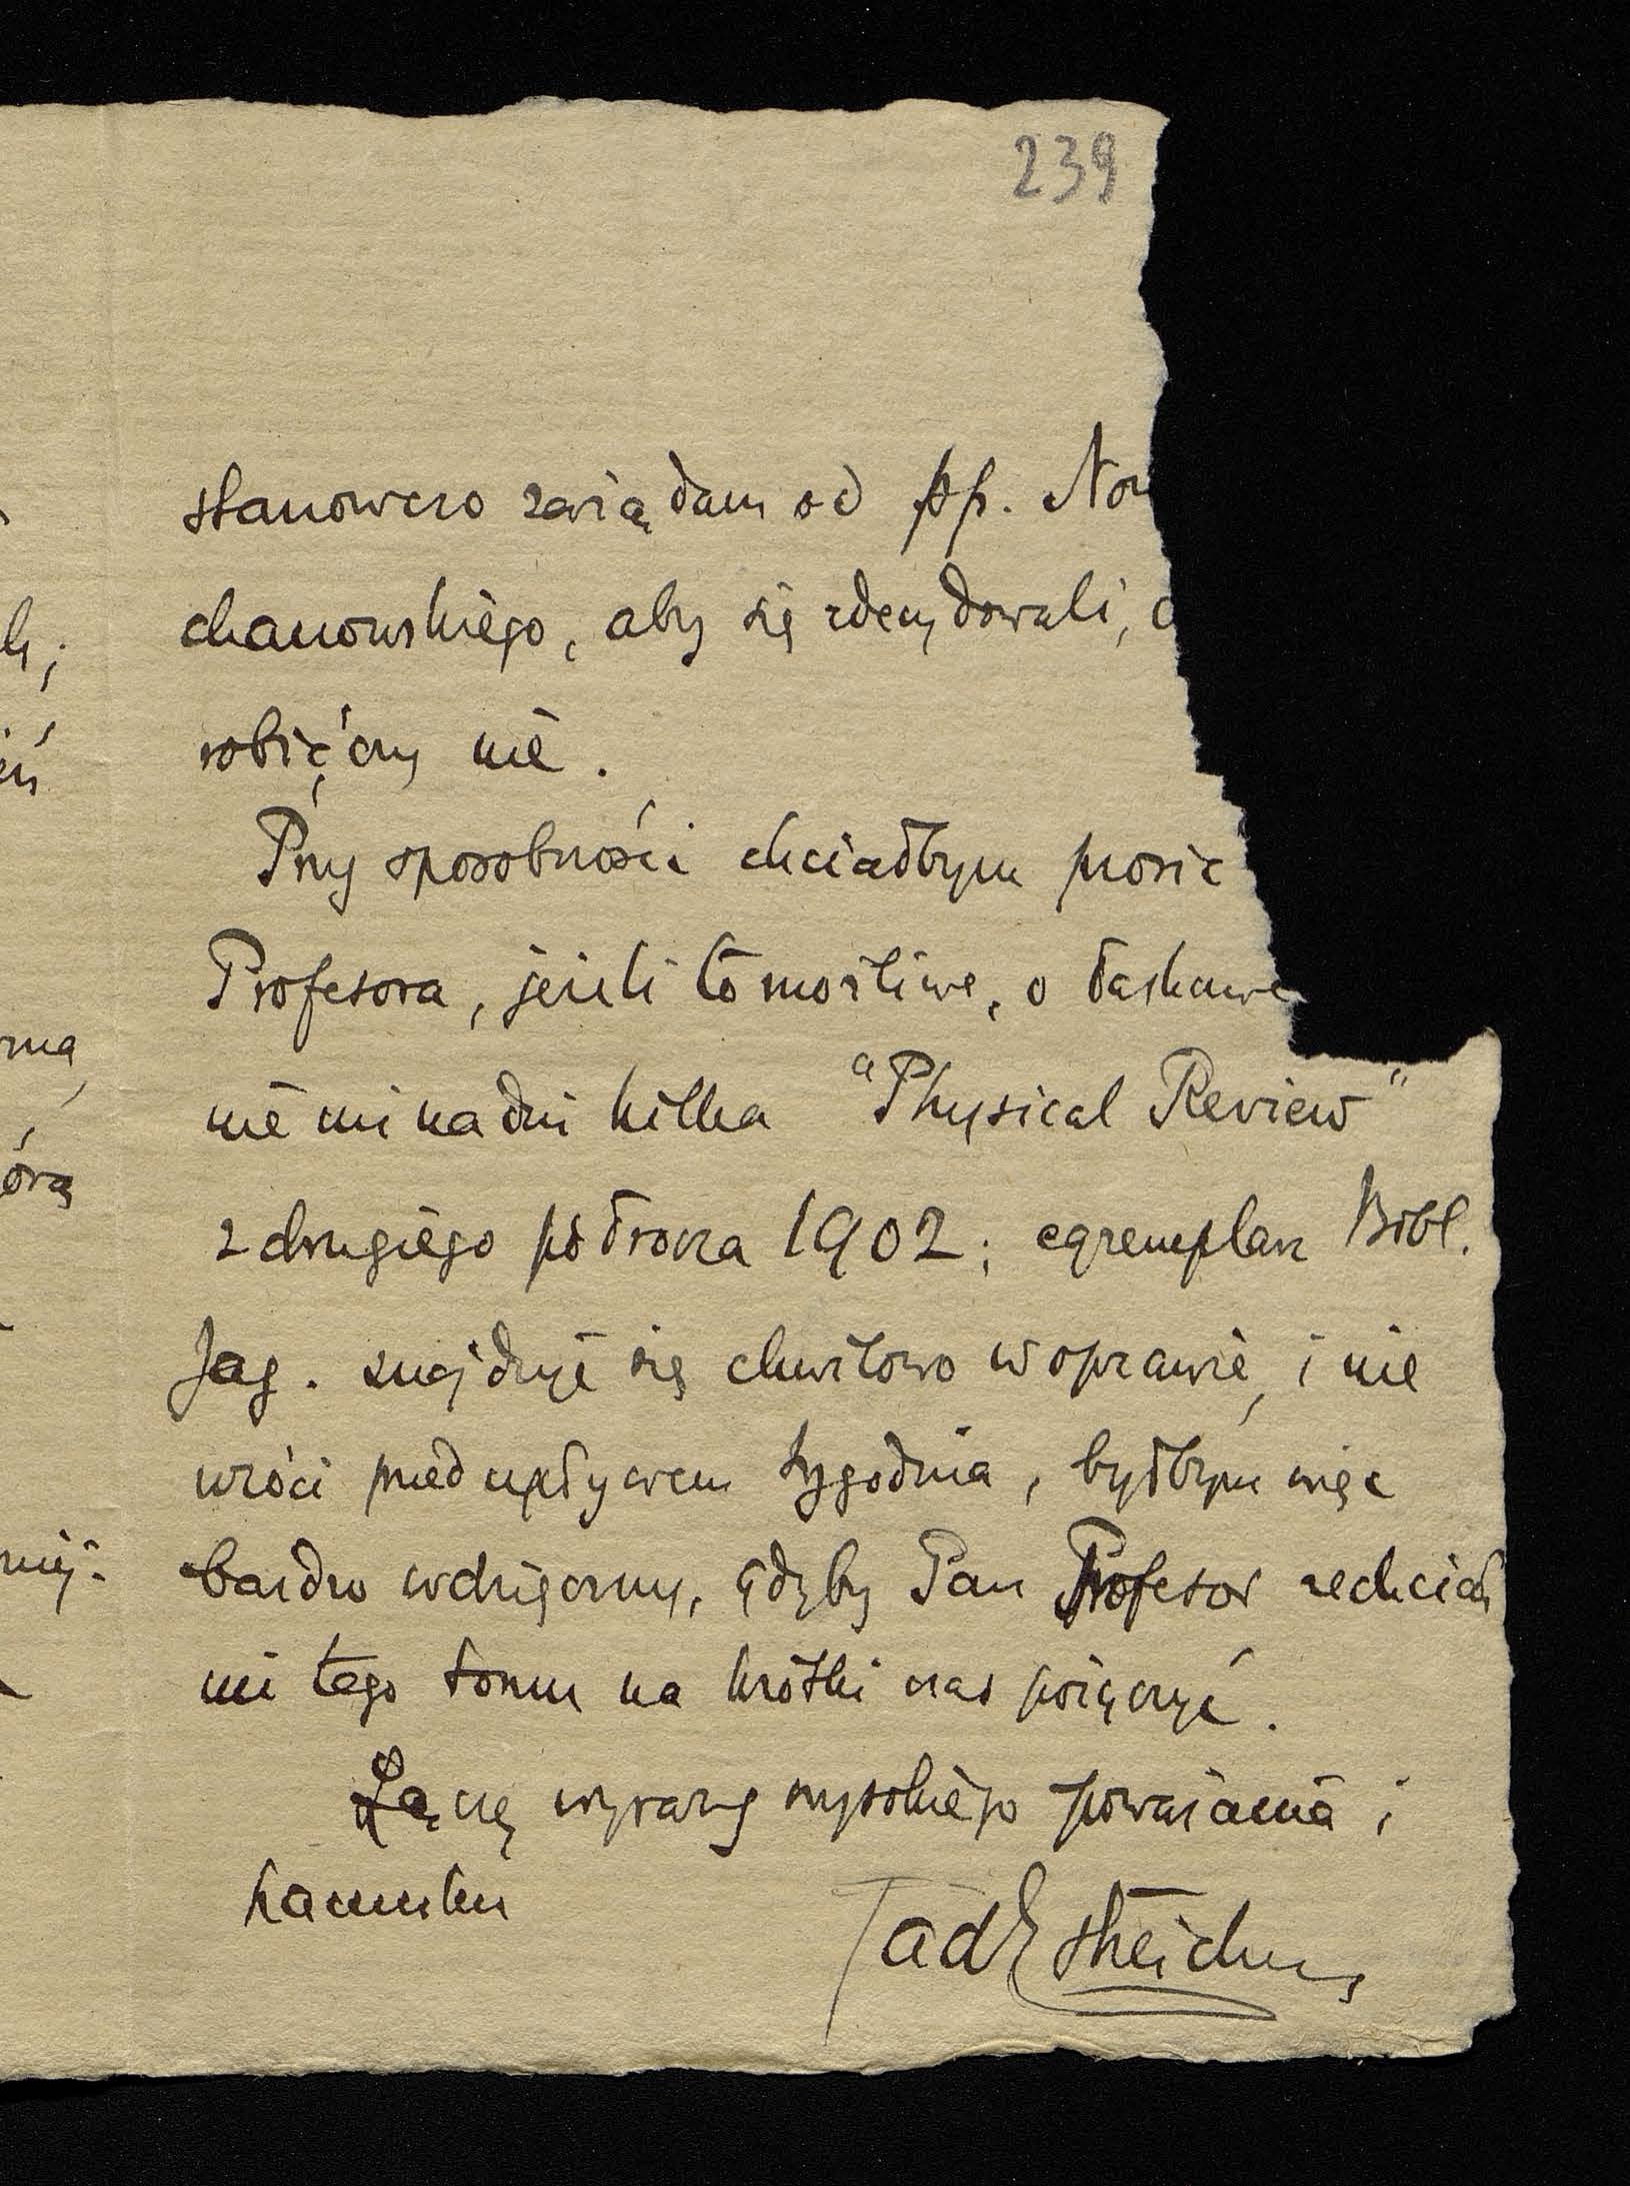 239
stanowczo zażądam od pp. Now
chanowskiego, aby się zdecydowali, c
robić, czy nie.
Przy sposobności chciałbym prosić
Profesora, jeżeli to możliwe, o łaskawe
nie mi na dni kilka "Physical Review"
z drugiego półrocza 1902; egzemplarz Bibl.
Jag. znajduje się chwilowo w oprawie, i nie
wróci przed upływem tygodnia, byłbym więc
bardzo wdzięczny, gdyby Pan Profesor zechciał
mi tego tomu na krótki czas pożyczyć.
Łączę wyrazy wysokiego poważania i
szacunku
Tad Estreicher